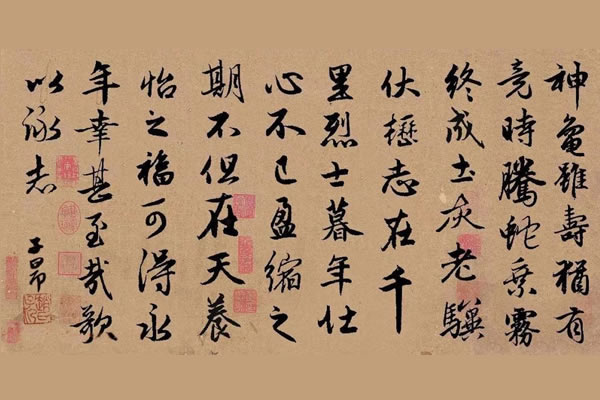 神龜雖壽猶有
竟時騰蛇乗霧
終成土灰老驥
伏櫪志在千
里烈士暮年壮
心不已盈縮之
期不但在天養
怡之福可得永
年幸甚至哉歌
以詠志
子昂